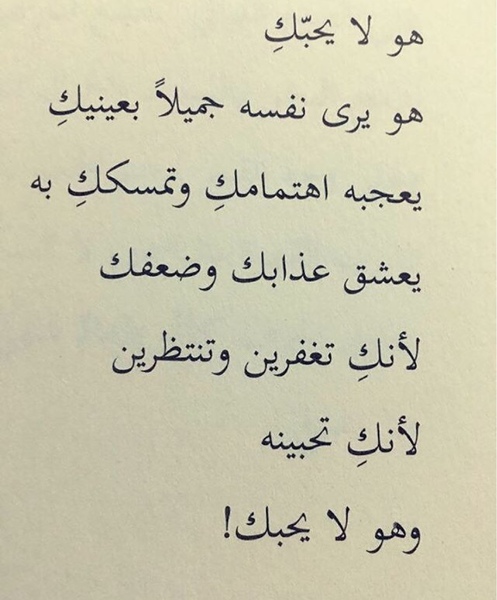 هو لا يحبّكِ
هو يرى نفسه جميلاً بعينيكِ
يعجبه اهتمامكِ وتمسككِ به
يعشق عذابك وضعفك
لأنكِ تغفرين وتنتظرين
لأنكِ تحبينه
وهو لا يحبك!